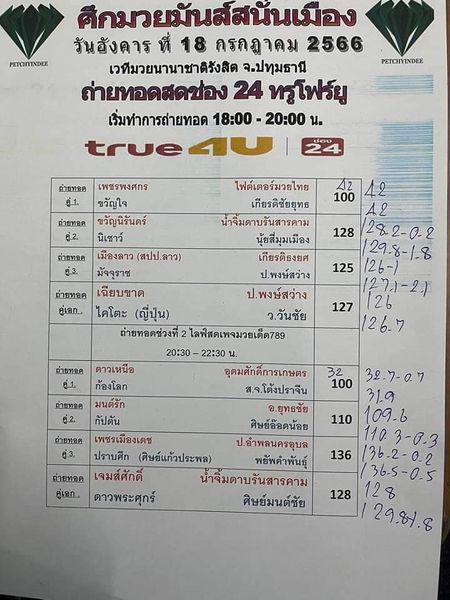 ศึกมวยมันส์สนั่นเมือง
PETCHYINDEE
PETCHYINDEE
วันอังคาร ที่ 18 กรกฎาคม 2566
เวทีมวยนานาชาติรังสิต จ.ปทุมธานี
ถ่ายทอดสดช่อง 24 ทรูโฟร์ยู
เริ่มทำการถ่ายทอด 18:00 - 20:00 น.
true4U ช่อง 24
ถ่ายทอด เพชรพงศกร ไฟต์เตอร์มวยไทย 42 100 42
คู่ 1. ขวัญใจ เกียรติชัยยุทธ 42
ถ่ายทอด ขวัญนิรันดร์ น้ำจิ้มดาบรันสารคาม 128 128.2-0.2
คู่.2. นิเชาว์ นุ้ยสี่มุมเมือง 129.8-1.8
ถ่ายทอด เมืองลาว (สปป.ลาว) เกียรติธงยศ 125 126-1
คู่.3. มัจจุราช ป.พงษ์สว่าง 127.1-2.1
ถ่ายทอด เฉียบขาด ป.พงษ์สว่าง 127 126
คู่เอก . ไคโตะ (ญี่ปุ่น) ว.วันชัย 126.7
ถ่ายทอดช่วงที่ 2 ไลฟ์สดเพจมวยเด็ด789
20:30 – 22:30 น.
ถ่ายทอด ดาวเหนือ อุดมศักดิ์การเกษตร 32 100 32.7-0.7
คู่ 1. ก้องโลก ส.จ.โต้งปราจีน 31.9
ถ่ายทอด มนต์รัก อ.ยุทธชัย 110 109.6
คู่.2. กัปตัน ศิษย์อ๊อดน้อย 110.3-0.3
ถ่ายทอด เพชรเมืองเดช ป.อำพลนครอุบล 136 136.2-0.2
คู่.3. ปราบศึก (ศิษย์แก้วประพล) พยัฅคำพันธุ์ 136.5-0.5
ถ่ายทอด เจมส์ศักดิ์ น้ำจิ้มดาบรันสารคาม 128 128
คู่เอก . ดาวพระศุกร์ ศิษย์มนต์ชัย 129.8-1.8